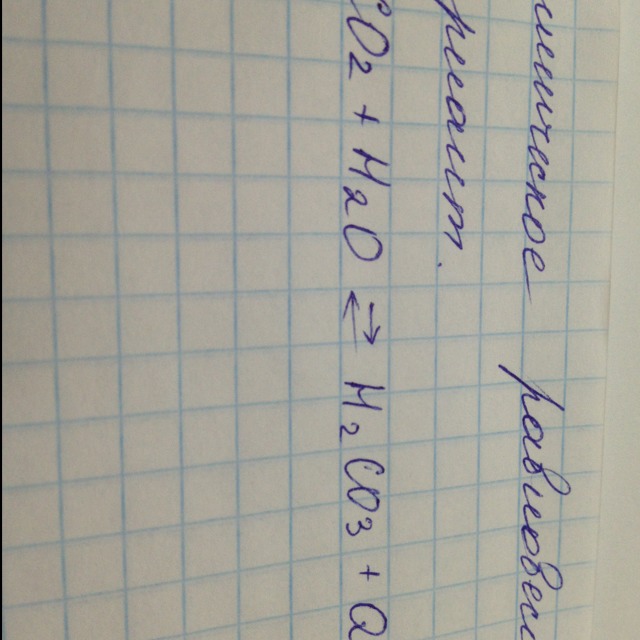 мическое равновеси
CO₂ + H₂O ⇄ H₂CO₃ + Q